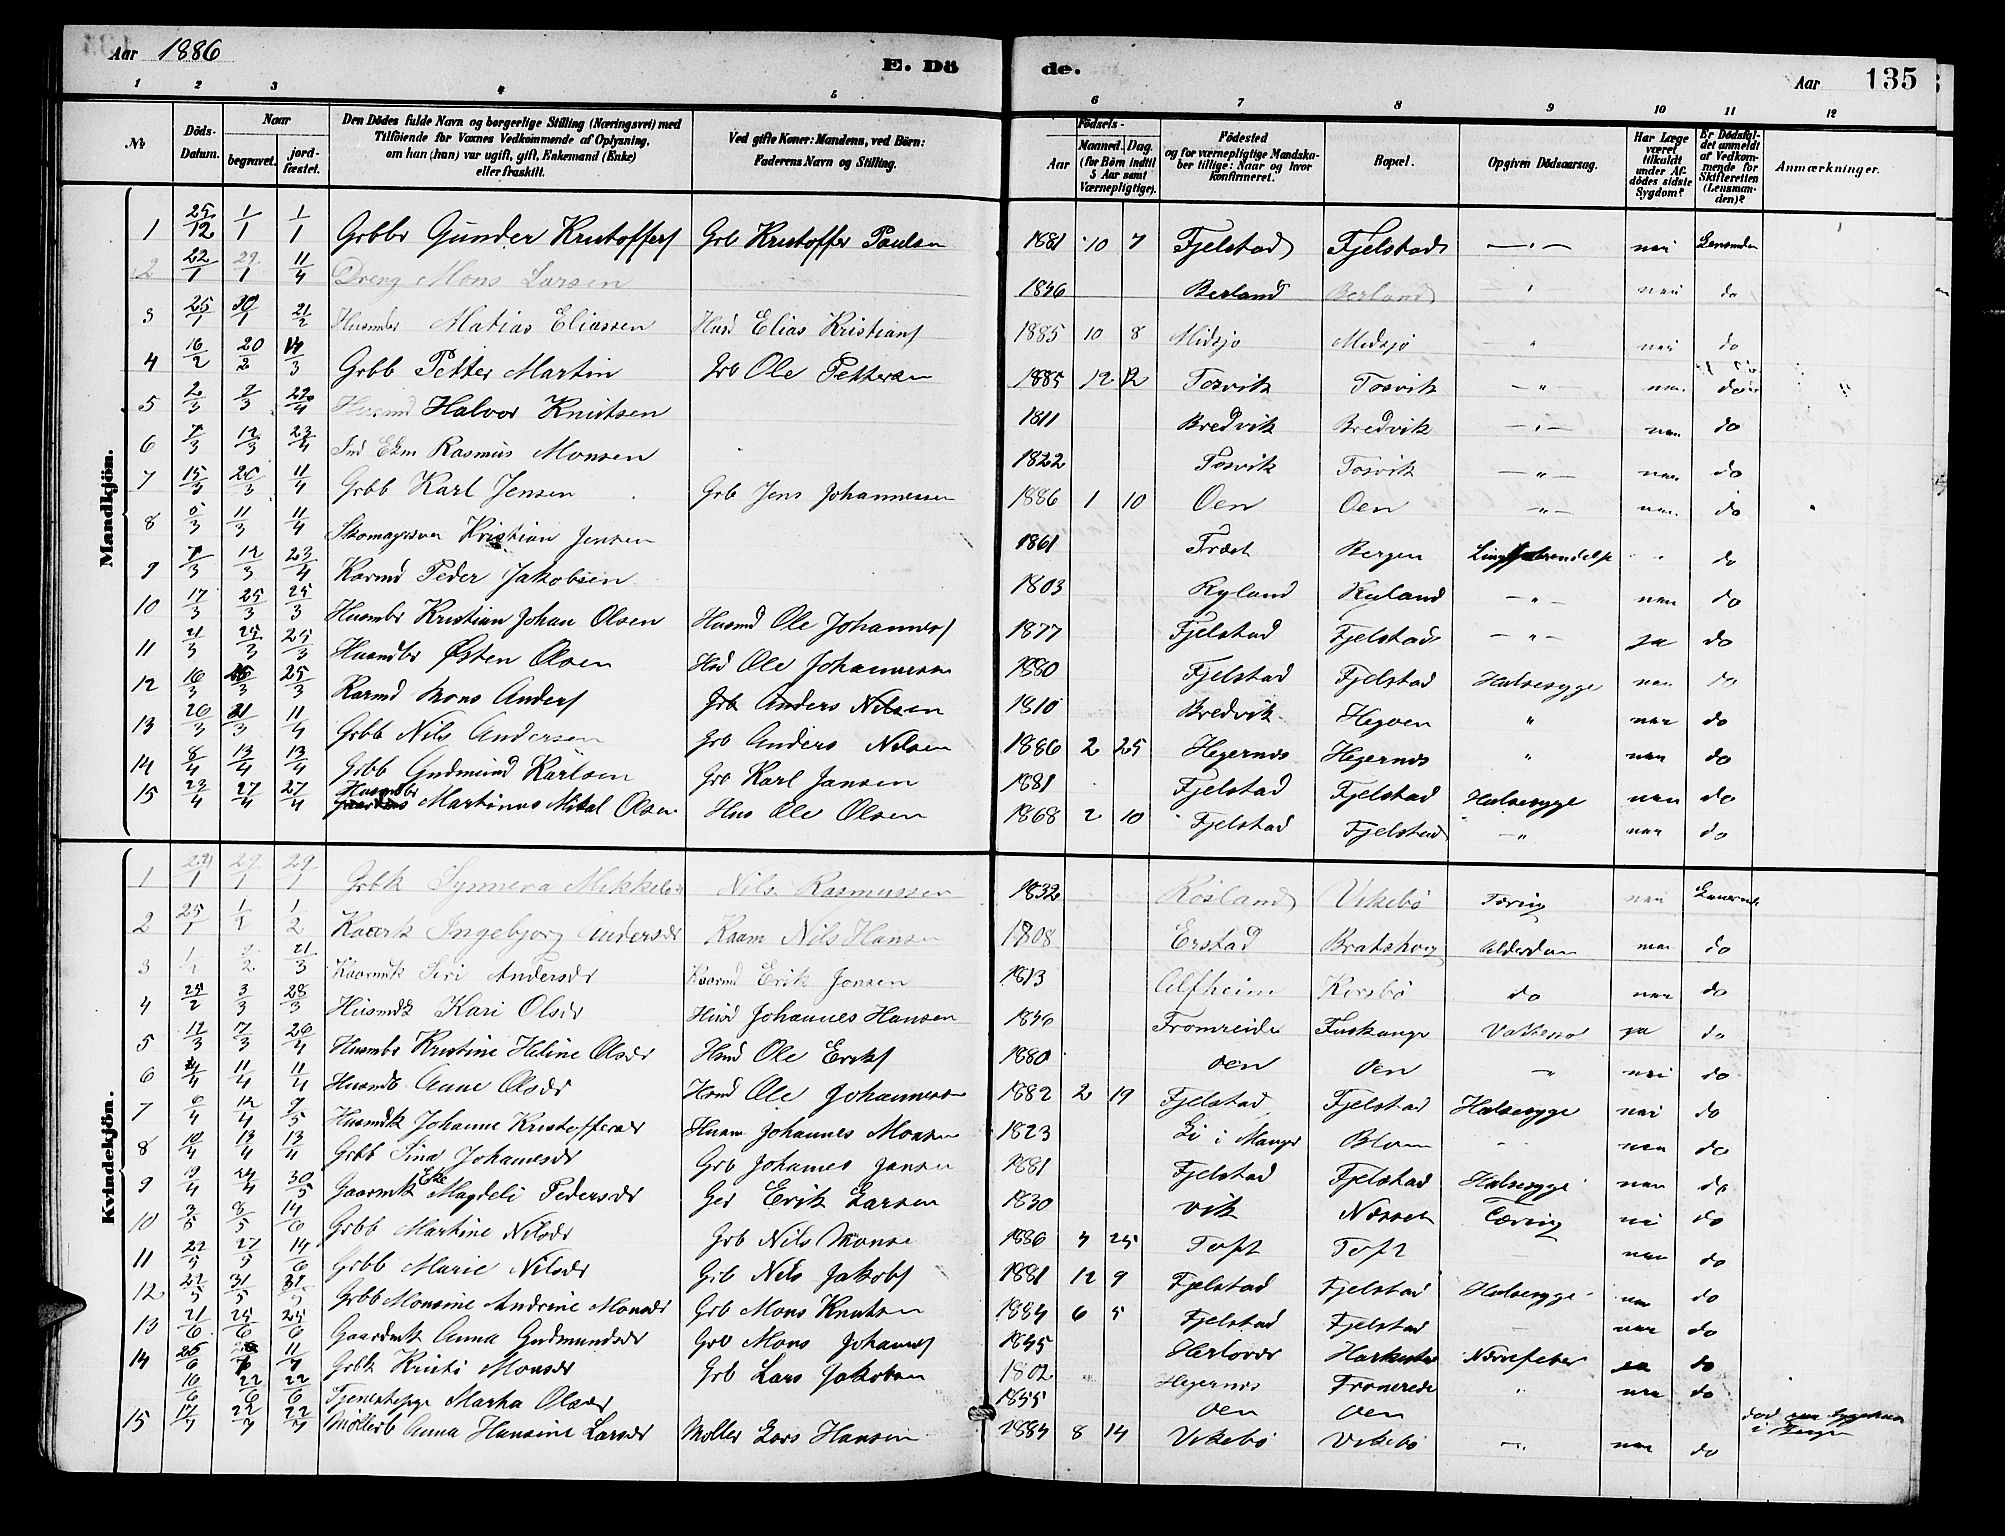 Aar 1886
E. Dö de.
Aar 135
1 2 3 4 5 6 7 8 9 10 11 12
No
Döds-Datum.
Naar
begravet.
jord-fæstet.
Den Dödes fulde Navn og borgerlige Stilling (Næringsvei) med
Tilföiende for Voxnes Vedkommende af Oplysning,
om han (hun) var ugift, gift, Enkemand (Enke)
eller fraskilt.
Ved gifte Koner: Mandens, ved Börn:
Faderens Navn og Stilling.
Födsels-
Aar
Maaned. Dag.
(for Börn indtil
5 Aar samt
Værnepligtige).
Födested
og for værnepligtige Mandska-
ber tillige: Naar og hvor
konfirmeret.
Bopæl.
Opgiven Dödsaarsag.
Har Læge
været
tilkaldt
under Af-
dödes sidste
Sygdom?
Er Dödsfal-
det anmeldt
af Vedkom-
mende for
Skifteretten
(Lensman-
den)?
Anmærkninger.
Mandkjön.
1 25/12 1/1 1/1 Grbbr Gunder Kristoffers Grb Kristoffer Paulsen 1881 10 7 Fjelstad Fjelstad nei
2 22/1 29/1 11/4 Dreng Mons Larsen 1836 Berland Berland nei do
3 25/1 30/1 21/2 Husmbr Matias Eliassen Husd Elias Kristians 1885 10 8 Midsjo Midsjö nei do
4 16/2 20/2 14/3 Grbb Petter Martin Grb Ole Pettersen 1885 12 12 Tosvik Tosvik do
5 2/3 7/3 Halvor Knutsen 1811 Bredvik Bredvik nei do
6 7/3 12/3 23/4 Ind Ekm Rasmus Monsen 1822 Tosvik Tosvik nei do
7 15/3 20/3 11/4 Grbb Karl Jensen Grb Jens Johannessen 1886 1 10 Oen Oen nei do
8 5/3 11/3 11/4 Skomagersven Kristian Jensen 1861 Træet Bergen do
9 7/3 12/3 23/4 Kaarmd Peder Jakobsen 1803 Ryland Ryland nei do
10 17/3 25/3 25/3 Husmbr Kristian Johan Olsen Husmd Ole Johannes 1877 Fjelstad Fjelstad ja do
11 21/3 25/3 25/3 Husmdbr Østen Olsen Husd Ole Johannesen 1880 Fjelstad Fjelstad Halsesyge nei do
12 16/3 25/3 Karmd Mons Anders Grb Anders Nilsen 1810 Bredvik nei do
13 20/3 31/3 11/4 Grbb Nils Andersen Grb Anders Nilsen 1886 2 25 Hegernes Hegernes nei do
14 8/4 13/4 13/4 Grbb Gudmund Karlsen Grb Karl Jansen 1881 Fjelstad Fjelstad Halsesyge nei do
15 23/4 27/4 27/4 Husmbr Martinus Mikal Olsen Hus Ole Olsen 1868 2 10 Fjelstad Fjelstad nei do
Kvindekjön.
1 29/1 29/1 Grbk Synneva Mikkelsdr Nils Rasmussen 1832 Røsland Vikebö Tæring nei
2 25/1 1/2 Kaark Ingebjorg Andersdr Kaarm Nils Hansen 1808 Erstad Alderdom nei do
3 2/2 21/3 Kaarmk Siri Andersdr Kaarmd Erik Jonsen 1813 Alfheim Kirsbö do nei do
4 3/3 28/3 Husmdk Kari Olsdr Husd Johannes Hansen 1846 Fromreide ja do
5 12/3 7/3 Husmbr Kristine Heline Olsdr Husd Ole Eriks 1880 Oen Oen nei do
6 11/4 11/4 Husmdb Anne Olsdr Husd Ole Johannesen 1882 2 19 Fjelstad Fjelstad Halsesyge nei do
7 Husmdk Johanne Kristoffersdr Husm Johannes Monsen 1823 Li i Manger Blom nei do
8 10/4 13/4 13/4 Grbb Sina Johannesdr Grb Johannes Jansen 1881 Fjelstad Fjelstad Halsesyge nei do
9 19/4 24/4 30/5 Gaarmk Eke Magdeli Pedersdr Erik Larsen 1830 Vik Tæring nei do
10 3/5 8/5 14/6 Grbb Martine Nilsdr Grb Nils Monsen 1886 4 25 Toft Toft nei do
11 22/5 27/5 14/6 Grbb Marie Nilsdr Grb Nils Jakobs 1881 12 9 Fjelstad Fjelstad Halsesyge nei do
12 22/5 31/5 31/5 Grbb Monsine Andrine Monsdr Grb Mons Knutsen 1884 6 5 Fjelstad Fjelstad nei do
13 21/6 25/6 25/6 Gaardmk Anna Gudmundsdr Grb Mons Johannes 1845 Herlover Nervefeber ja do
14 26/6 11/7 Grbk Kristi Monsdr Grb Lars Jakobsen 1802 Hegernes Fromreide nei do
16/6 22/6 22/6 Tjenestepige Marta Olsdr 1855 Oen Oen
15 17/7 22/7 22/7 Møllerb Anna Hansine Larsdr Møller Lars Hansen 1884 8 14 Vikebö Vikebö nei do
død paa Sygehus i Bergen